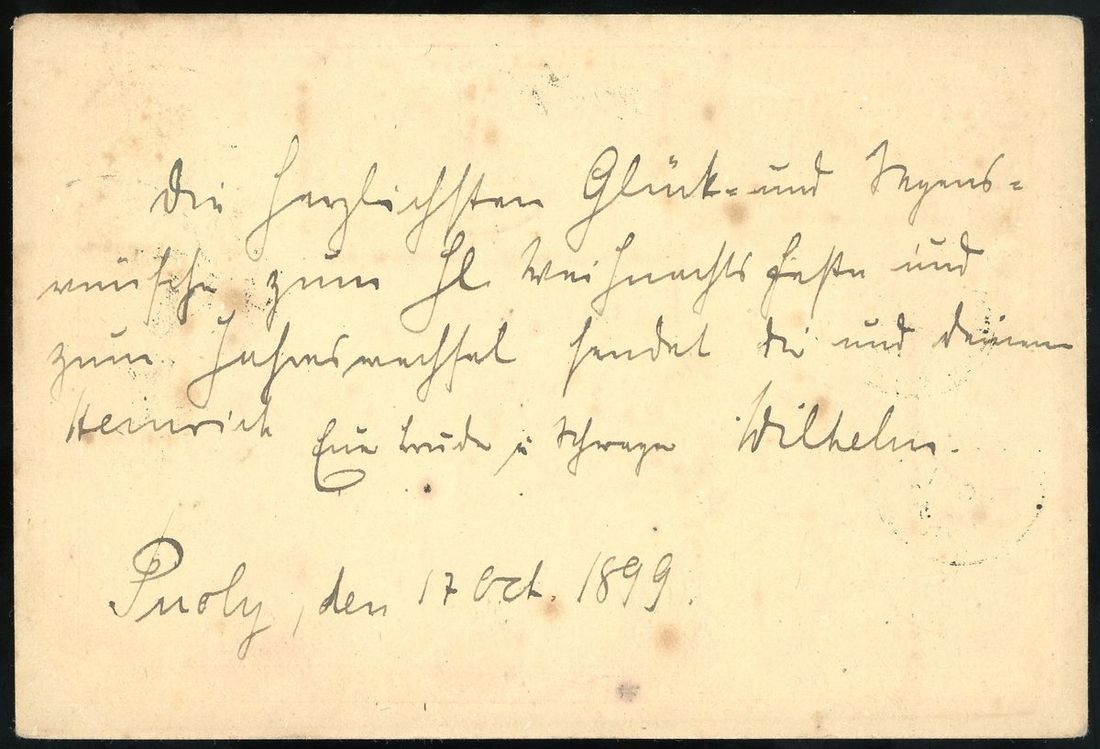 Die herzlichsten Glück- und Segens-
wünsche zum hl. Weihnachtsfeste und
zum Jahreswechsel sendet dir und deinem
Heinrich Euer Bruder u. Schwager Wilhelm.
, den 17 Oct. 1899.